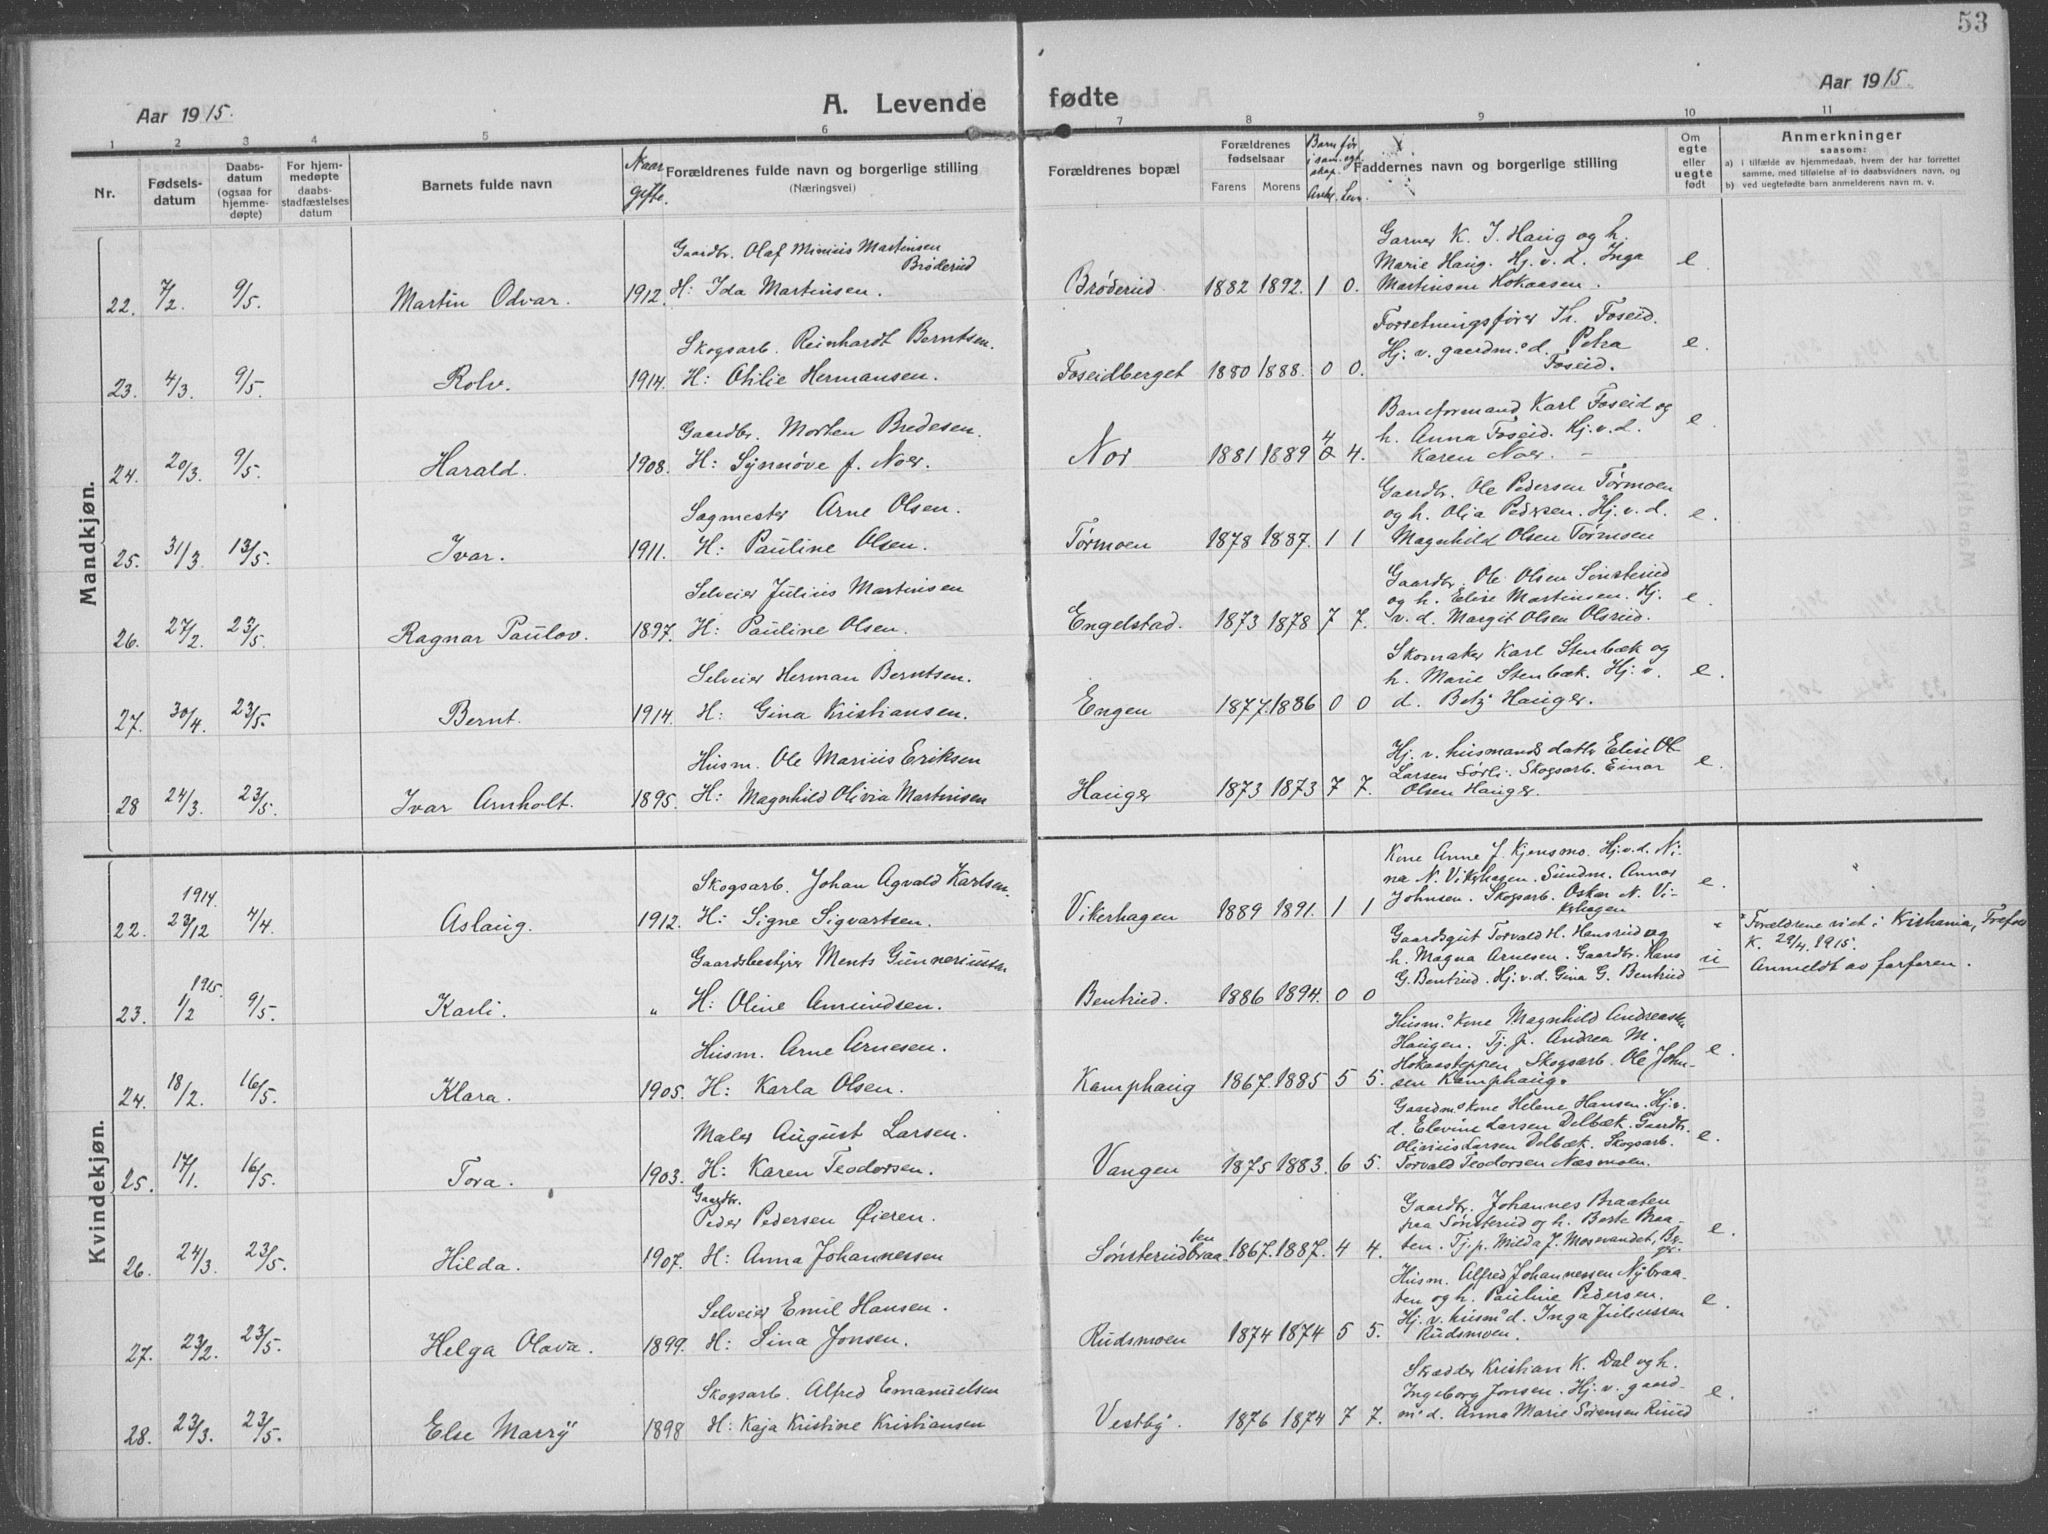 53
Aar 1915.
A. Levende fødte
Aar 1915.
1 2 3 4 5 6 7 8 9 10 11
Nr.
Fødsels-
datum
Daabs-
datum
(ogsaa for
hjemme-
døpte)
For hjem-
medøpte
daabs-
stadfæstelses
datum
Barnets fulde navn
Naar
gifte.
Forældrenes fulde navn og borgerlige stilling
(Næringsvei)
Forældrenes bopæl
Forældrenes
fødselsaar
Farens Morens
Barn før
i sam. egt.
skap.
Antal. Lev.
Faddernes navn og borgerlige stilling
Om
egte
eller
uegte
født
Anmerkninger
saasom:
a) i tilfælde av hjemmedaab, hvem der har forrettet
samme, med tilføielse af to daabsvidners navn, og
b) ved uegtefødte barn anmelderens navn m. v.
Mandkjøn.
Gaardbr. Olaf Minius Martinsen
Brøderud
22. 7/2 9/5 Martin Odvar. 1912. H: Ida Martinsen. Brøderud. 1882 1892. 1 0.
Garver K. J. Haug og h.
Marie Haug. Hj. v. d. Inga
Martinsen Kokaasen.
e.
Skogsarb. Reinhardt Berntsen.
23. 4/3 9/5. Rolv. 1914. H: Otilie Hermansen. Foseidberget 1880 1888. 0 0.
Forretningsfører Th. Foseid.
Hj. v. gaardm. d. Petra
Foseid.
e.
Gaardbr. Morten Bredesen.
24. 20/3. 9/5. Harald. 1908. H: Synnøve f. Noer. Nor 1881 1889 4 4.
Baneformand Karl Foseid og
h. Anna Foseid. Hj. v. d.
Karen Noer. –
e.
Sagmester Arne Olsen.
25. 31/3 13/5. Ivar. 1911. H: Pauline Olsen. Tørmoen 1878 1887. 1 1
Gaardbr. Ole Pedersen Tørmoen
og h. Olia Pedersen. Hj. v. d.
Magnhild Olsen Tørmoen
e.
Selveier Julius Martinsen
26. 27/2. 23/5. Ragnar Paulov. 1897. H: Pauline Olsen. Engelstad. 1873 1878 7 7.
Gaardbr. Ole Olsen Sønsterud
og h. Elise Martinsen. Hj.
v. d. Margit Olsen Olsrud.
e.
Selveier Herman Berntsen.
27. 30/4. 23/5. Bernt. 1914. H: Gina Kristiansen. Engen 1877. 1886 0 0
Skomaker Karl Stenbæk og
h. Marie Stenbæk. Hj. v.
d. Betz Hauger.
e.
Husm. Ole Marius Eriksen
28 24/3. 23/5. Ivar Arnholt. 1895. H: Magnhild Olivia Martinsen Hauger 1873 1873 7 7.
Hj. v. husmands datter Elise
Larsen Sørli. Skogsarb. Einar
Olsen Hauger.
e.
Kvindekjøn.
Skogsarb. Johan Agvald Karlsen.
22. 1914. 23/12 4/4. Aslaug. 1912. H: Signe Sigvartsen. Vikerhagen 1889 1891. 1 1
Kone Anne J. Kjensmo. Hj. v. d. Ni-
na N. Vikerhagen. Sundm. Anner
Johnsen. Skogsarb. Oskar N. Vi-
kerhagen
e.
Gaardsbestyrer Ments Gunneriusen
23. 1915. 1/2 9/5. Karli. " H: Oline Amundsen. Bentrud. 1886 1894. 0 0
Gaardsgut Torvald H. Hansrud og
h. Magna Arnesen. Gaardbr. Hans
G. Bentrud. Hj. v. d. Gina G. Bentrud
u
Forældrene viet i Kristiania, Trefold.
K. 29/4. 1915.
Anmeldt av farfaren.
Husm. Arne Arnesen.
24. 18/2. 16/5. Klara. 1905. H: Karla Olsen. Kamphaug 1867. 1885 5 5.
Husm. kone Magnhild Andreasen
Haugen. Tj. p. Andrea M.
Hokaasteppen. Skogsarb. Ole John-
sen Kamphaug.
e.
Maler August Larsen.
25. 17/1. 16/5. Tora. 1903. H: Karen Teodorsen. Vangen 1875 1883. 6 5.
Gaardm. kone Helene Hansen. Hj. v.
d. Elevine Larsen Delbæk. Gaardbr.
Olivius Larsen Delbæk. Skogsarb.
Torvald Teodorsen Næsmoen.
e.
Gaardbr.
Peder Pedersen Øieren.
26. 24/3. 23/5. Hilda. 1907. H: Anna Johannessen Sønsterudbraaten 1867. 1887. 4 4.
Gaardbr. Johannes Braaten
paa Sønsterud og h. Berte Braa-
ten. Tj. p. Milda J. Mosevandet,
e.
Selveier Emil Hansen.
27. 23/2. 23/5. Helga Olava. 1899. H: Lina Jonsen. Rudsmoen 1874 1874 5 5.
Husm. Alfred Johannessen Nybraa-
ten og h. Pauline Pedersen.
Hj. v. husm. d. Inga Juliussen
Rudsmoen.
e.
Skogsarb. Alfred Emanuelsen
28. 23/3. 23/5. Else Marry 1898 H: Kaja Kristine Kristiansen Vestby. 1876 1874 7 7.
Skrædder Kristian K. Dal og h.
Ingeborg Jonsen. Hj. v. gaard-
m. d. Anna Marie Sørensen Risud
e.